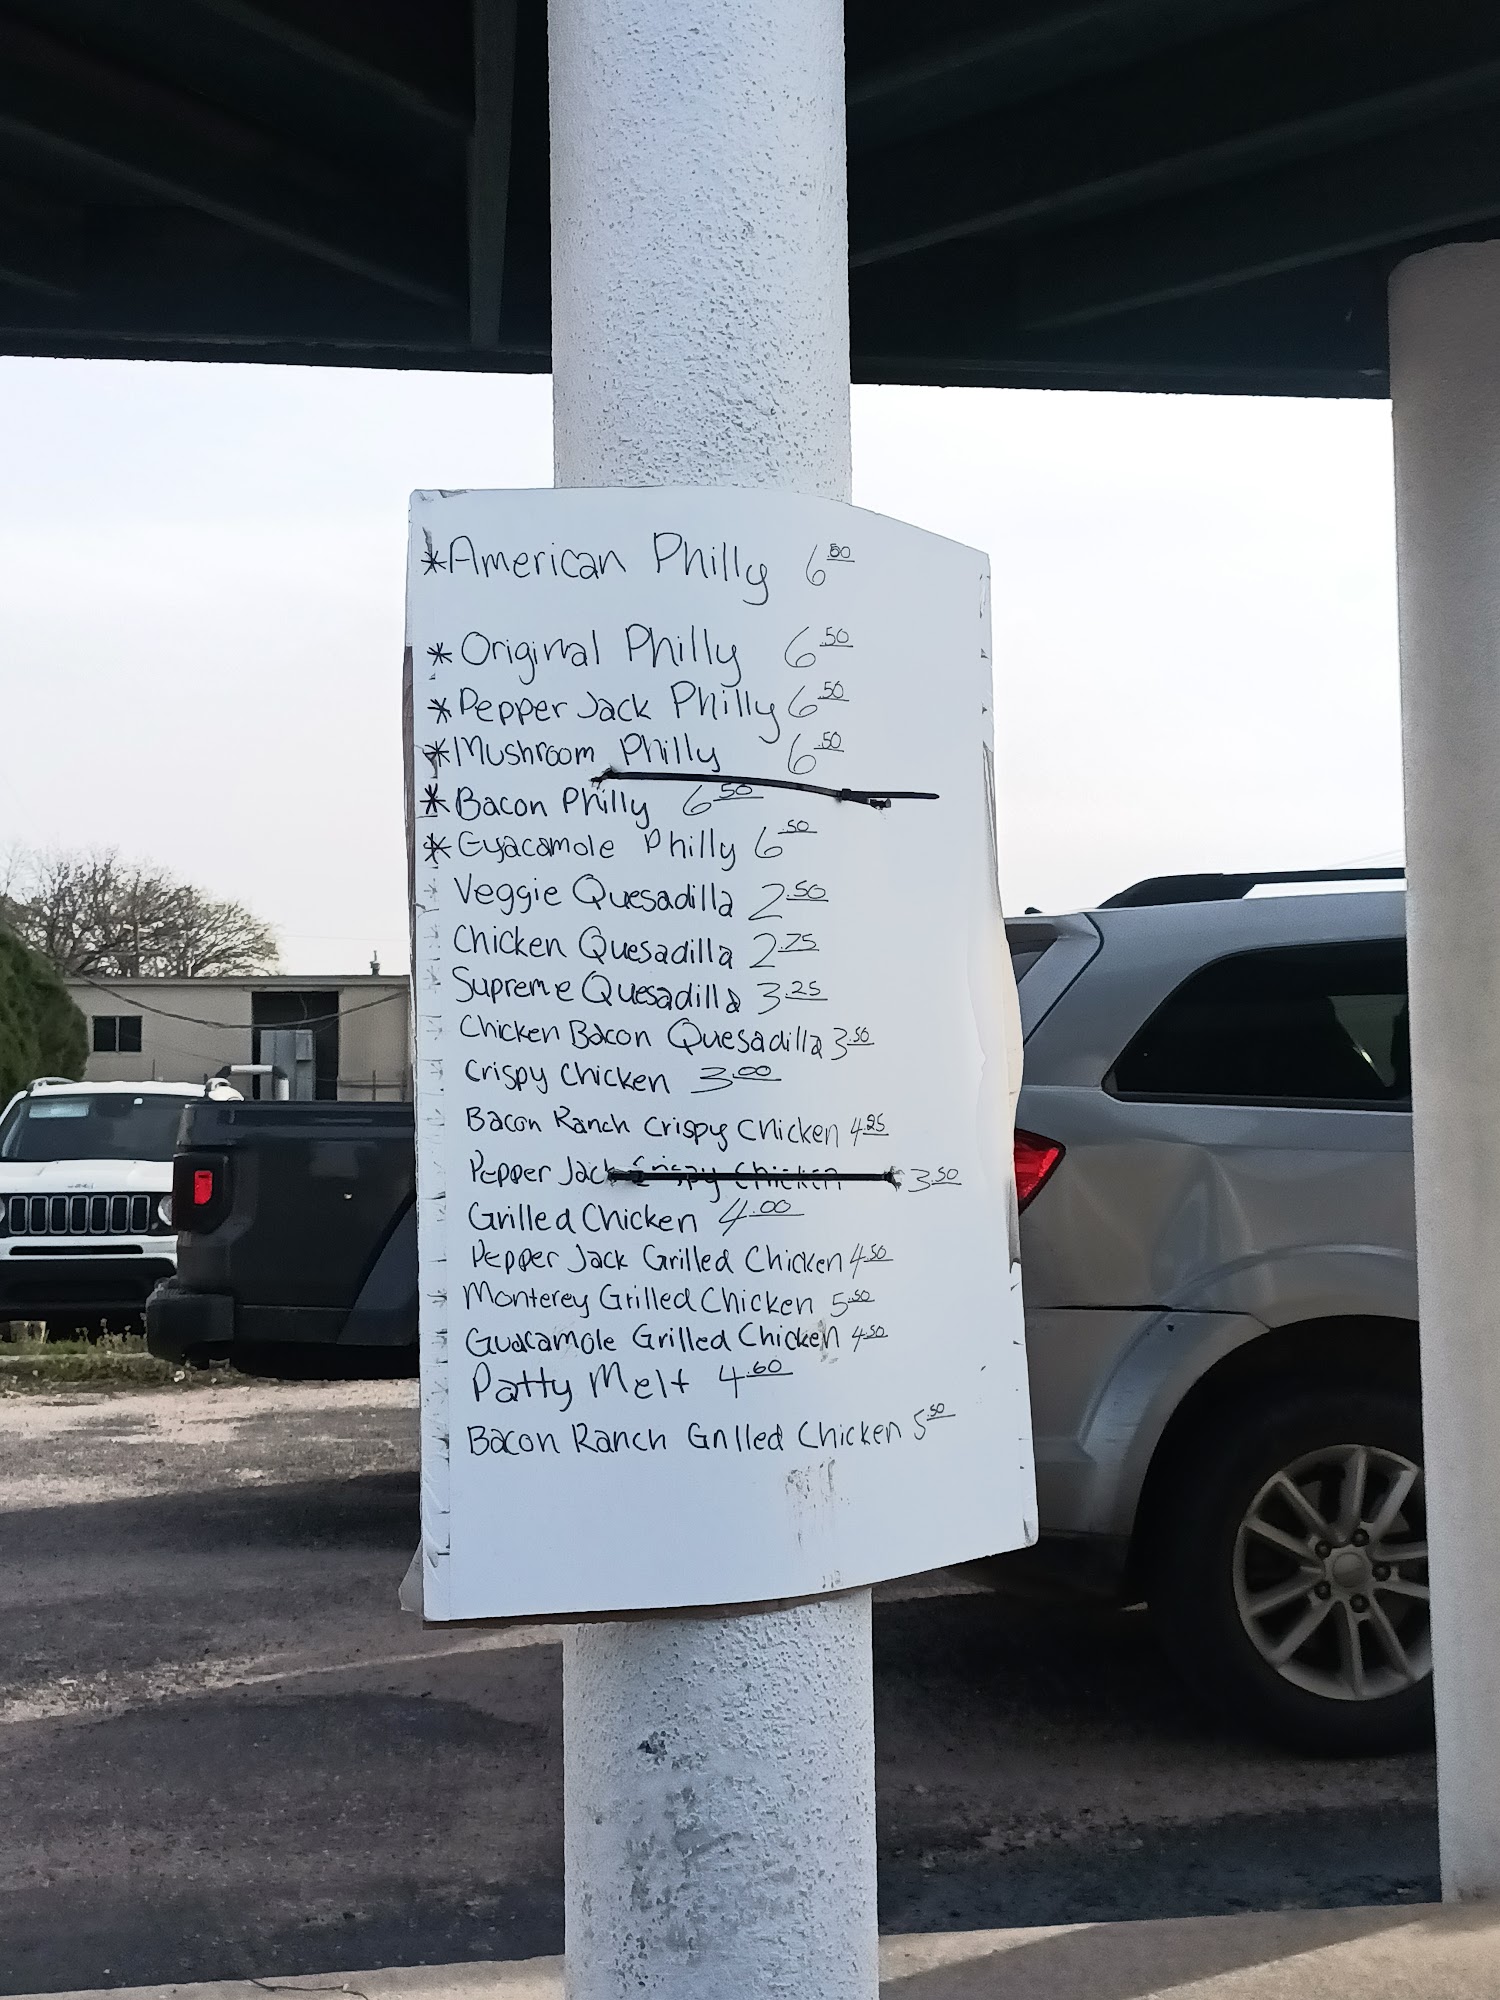 *American Philly 6.50
*Original Philly 6.50
*Pepper Jack Philly 6.50
*Mushroom Philly 6.50
*Bacon Philly 6.50
*Guacamole Philly 6.50
Veggie Quesadilla 2.50
Chicken Quesadilla 2.75
Supreme Quesadilla 3.25
Chicken Bacon Quesadilla 3.50
Crispy Chicken 3.00
Bacon Ranch Crispy Chicken 4.25
Pepper Jack Crispy Chicken 3.50
Grilled Chicken 4.00
Pepper Jack Grilled Chicken 4.50
Monterey Grilled Chicken 5.50
Guacamole Grilled Chicken 4.50
Patty Melt 4.60
Bacon Ranch Grilled Chicken 5.50